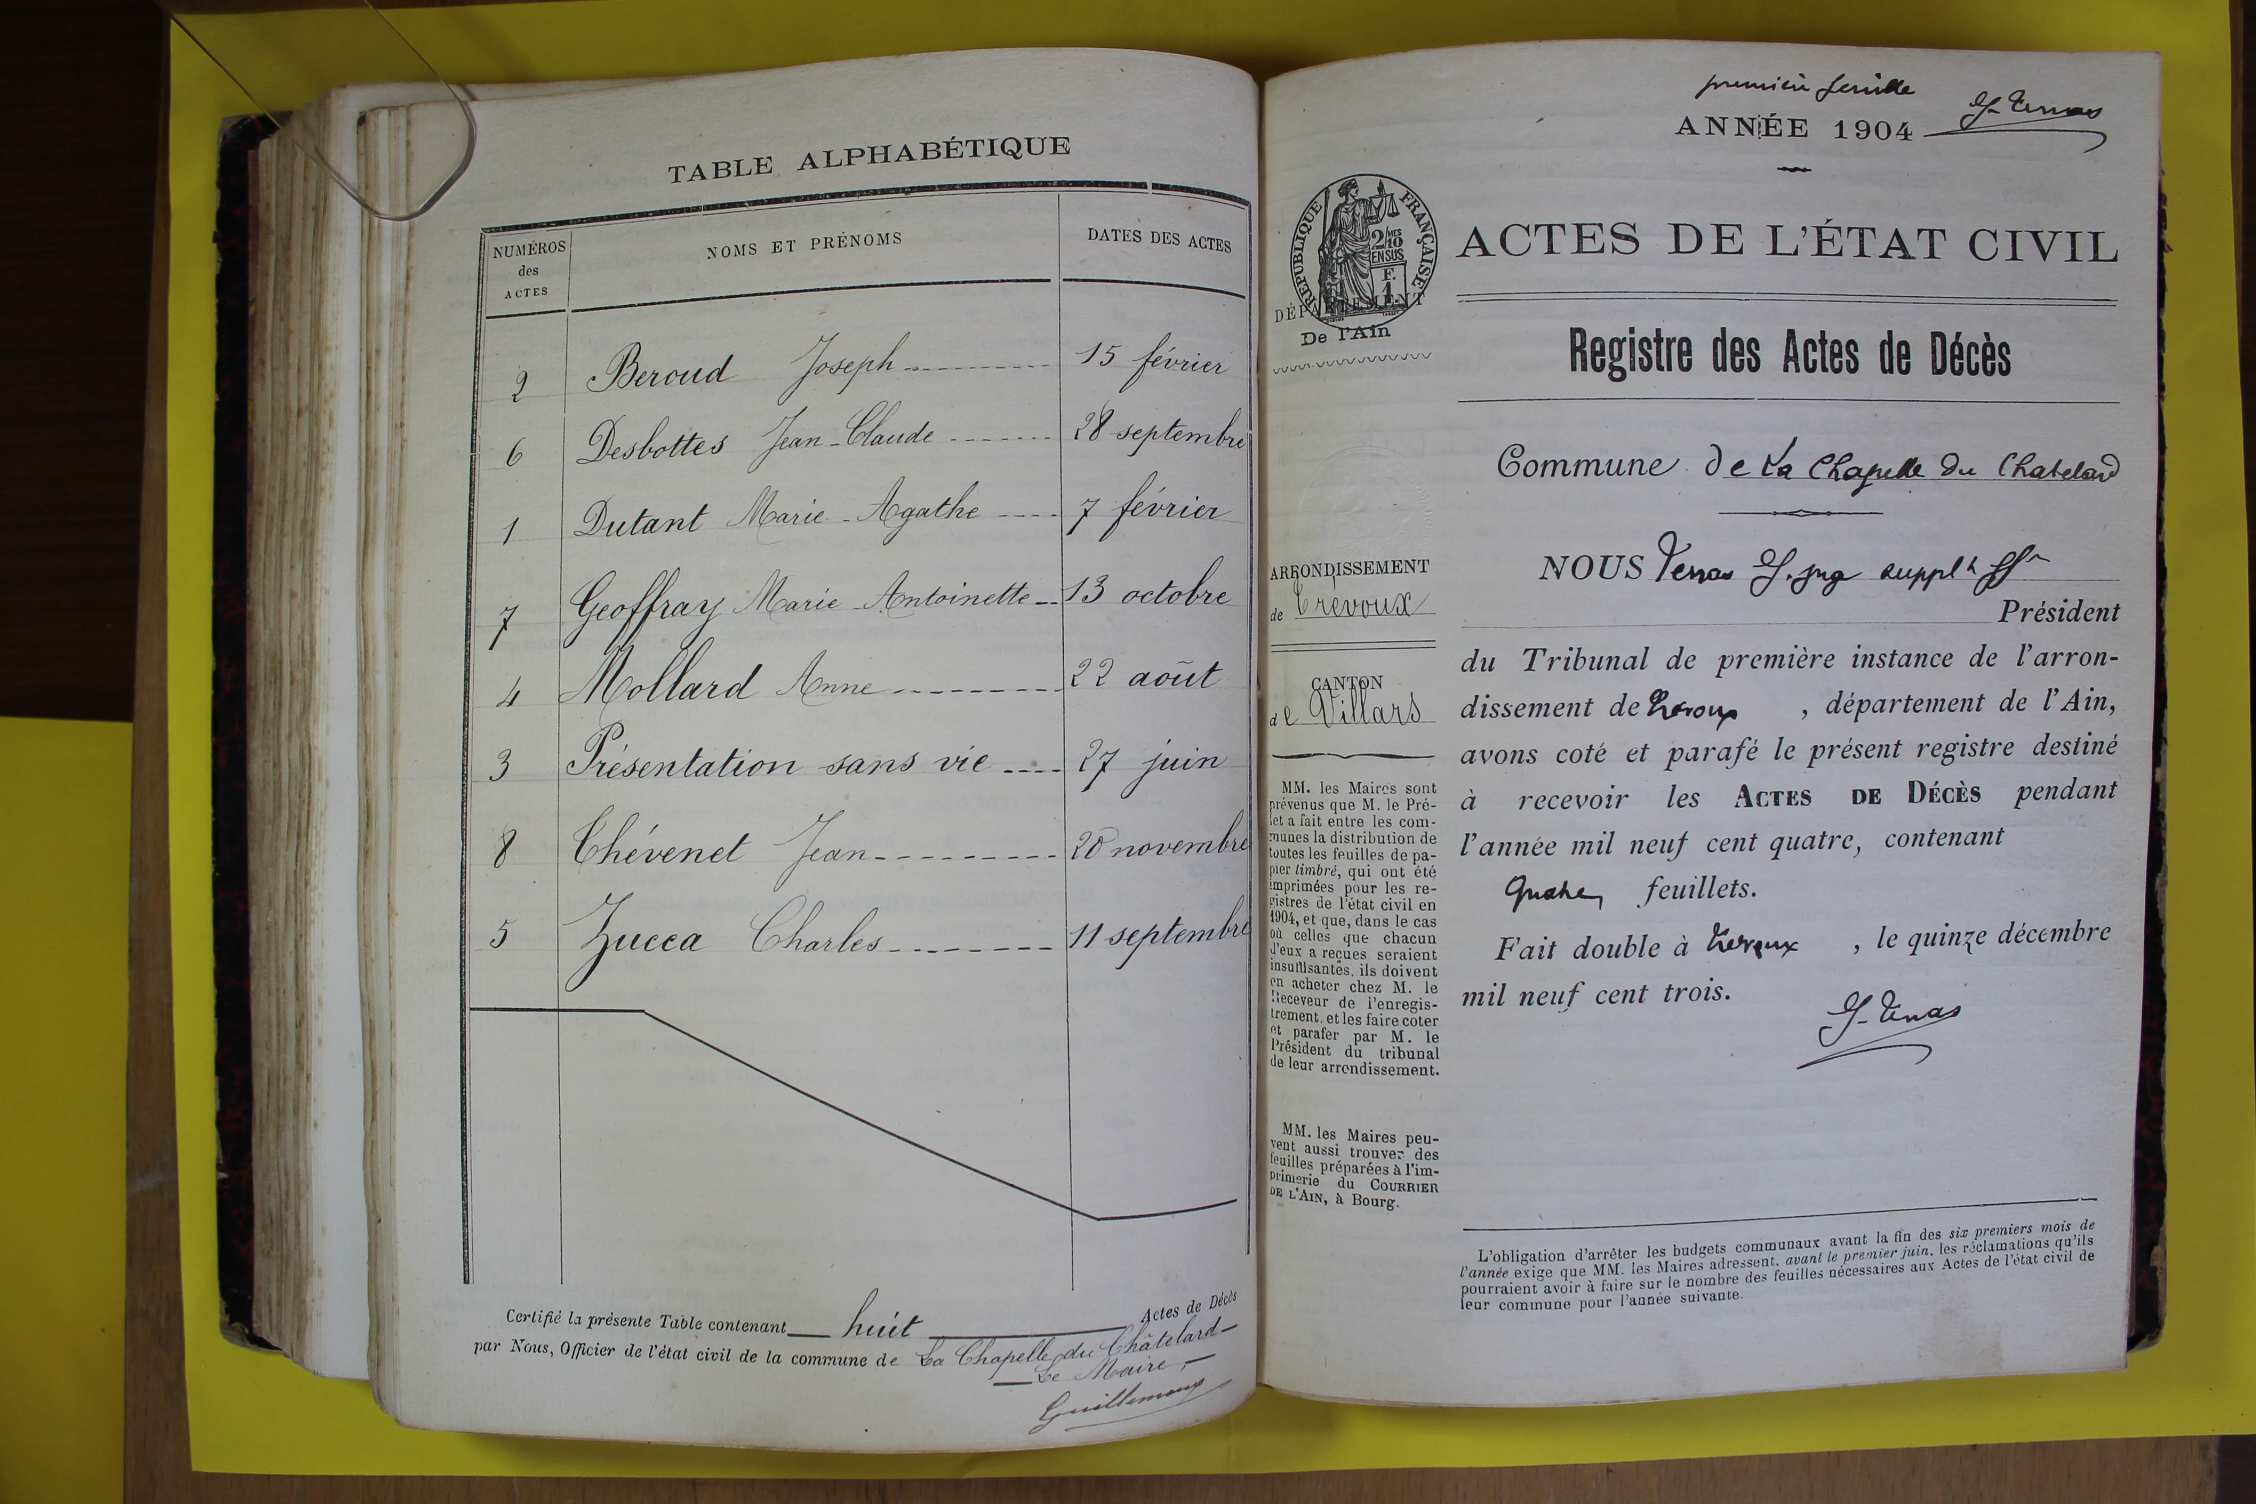 TABLE ALPHABÉTIQUE
NUMÉROS des ACTES NOMS ET PRÉNOMS DATES DES ACTES
2 Beroud Joseph 15 février
6 Desbottes Jean-Claude 28 septembre
1 Dutant Marie-Agathe 7 février
7 Geoffray Marie-Antoinette 13 octobre
4 Mollard Anne 22 août
3 Présentation sans vie 27 juin
8 Thévenet Jean 20 novembre
5 Zucca Charles 11 septembre
Certifié la présente Table contenant huit Actes de Décès
par Nous, Officier de l'état civil de la commune de La Chapelle du Châtelard
Le Maire,
première feuille
ANNÉE 1904
RÉPUBLIQUE FRANÇAISE
2/10 MES
EN SUS
F.
1
DÉPARTEMENT
De l'Ain
ARRONDISSEMENT
de Trévoux
CANTON
de Villars
MM. les Maires sont
prévenus que M. le Pré-
fet a fait entre les com-
munes la distribution de
toutes les feuilles de pa-
pier timbré, qui ont été
imprimées pour les re-
gistres de l'état civil en
1904, et que, dans le cas
où celles que chacun
d'eux a reçues seraient
insuffisantes, ils doivent
en acheter chez M. le
Receveur de l'enregis-
trement, et les faire coter
et parafer par M. le
Président du tribunal
de leur arrondissement.
MM. les Maires peu-
vent aussi trouver des
feuilles préparées à l'im-
primerie du COURRIER
DE L'AIN, à Bourg.
ACTES DE L'ÉTAT CIVIL
Registre des Actes de Décès
Commune de La Chapelle du Chatelard
NOUS
Président
du Tribunal de première instance de l'arron-
dissement de Trévoux, département de l'Ain,
avons coté et parafé le présent registre destiné
à recevoir les ACTES DE DÉCÈS pendant
l'année mil neuf cent quatre, contenant
quatre feuillets.
Fait double à Trévoux, le quinze décembre
mil neuf cent trois.
L'obligation d'arrêter les budgets communaux avant la fin des six premiers mois de
l'année exige que MM. les Maires adressent, avant le premier juin, les réclamations qu'ils
pourraient avoir à faire sur le nombre des feuilles nécessaires aux Actes de l'état civil de
leur commune pour l'année suivante.